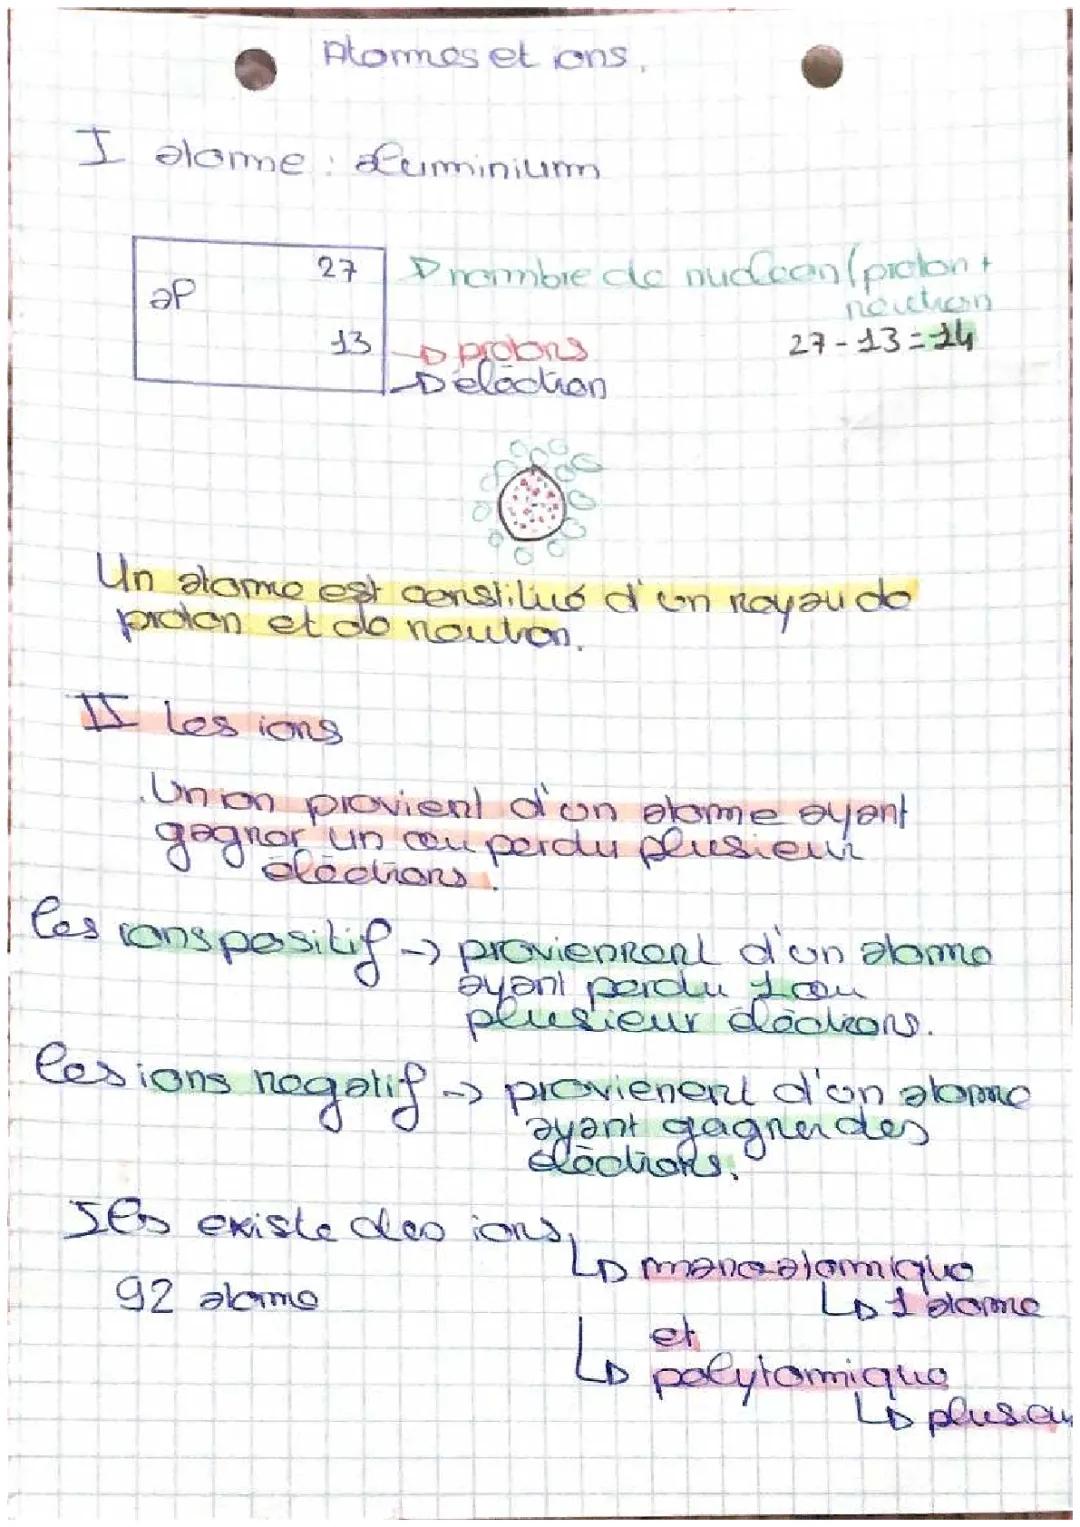 Atomes et ions.
I atome : aluminium
27
al
13
nombre de nucléon (proton +
neutron
27 - 13 = 14
protons
eléction
Un atome est constitué d'un noyau de
proton et de neutron.
II les ions
.Un ion provient d'un atome ayant
gagner un ou perdu plusieur
éléctrons.
les ions positif → proviennent d'un atome
ayant perdu 1 ou
plusieur éléctrons.
les ions negatif → provienent d'un atome
ayant gagner des
éléctrons.
Ils existe des ions,
monoatomique
1 atome
92 atome
et
polytomique
plusieu